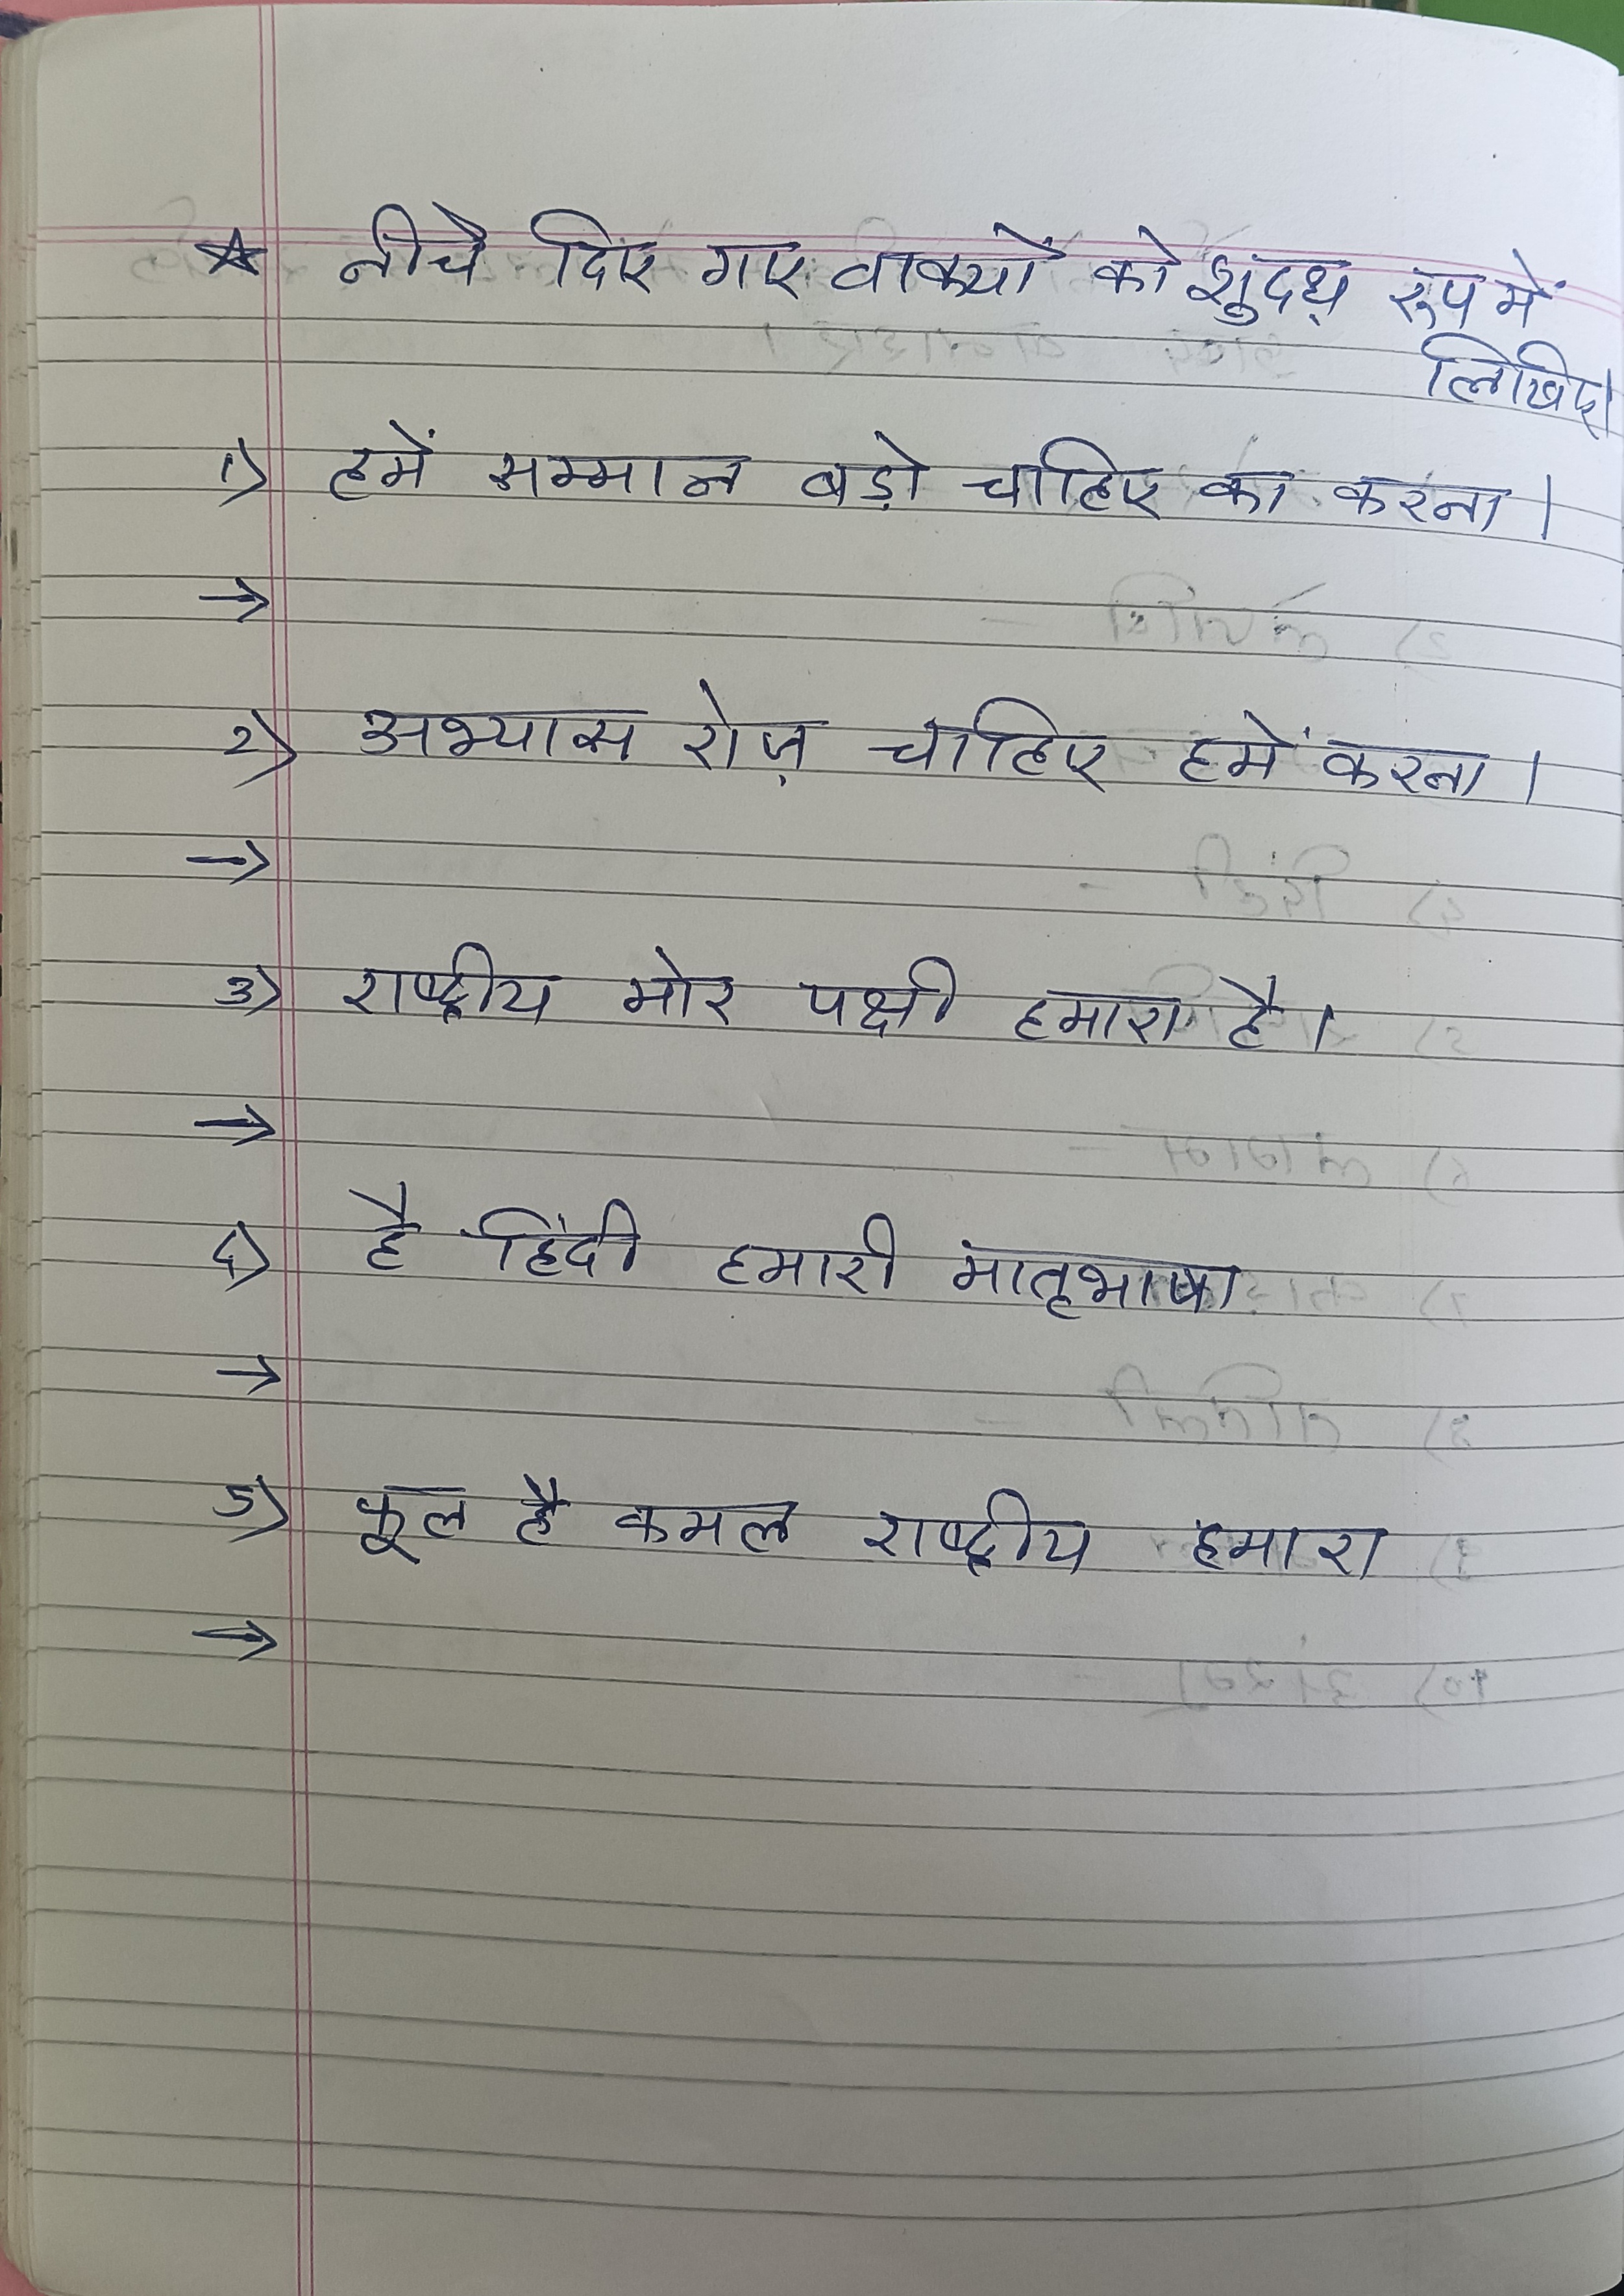 ☆ नीचे दिए गए वाक्यों को शुद्ध रूप में
लिखिए।
1) हमें सम्मान बड़ो चाहिए का करना।
→
2) अभ्यास रोज़ चाहिए हमें करना।
→
3) राष्ट्रीय मोर पक्षी हमारा है।
→
4) है हिंदी हमारी मातृभाषा
→
5) फूल है कमल राष्ट्रीय हमारा
→